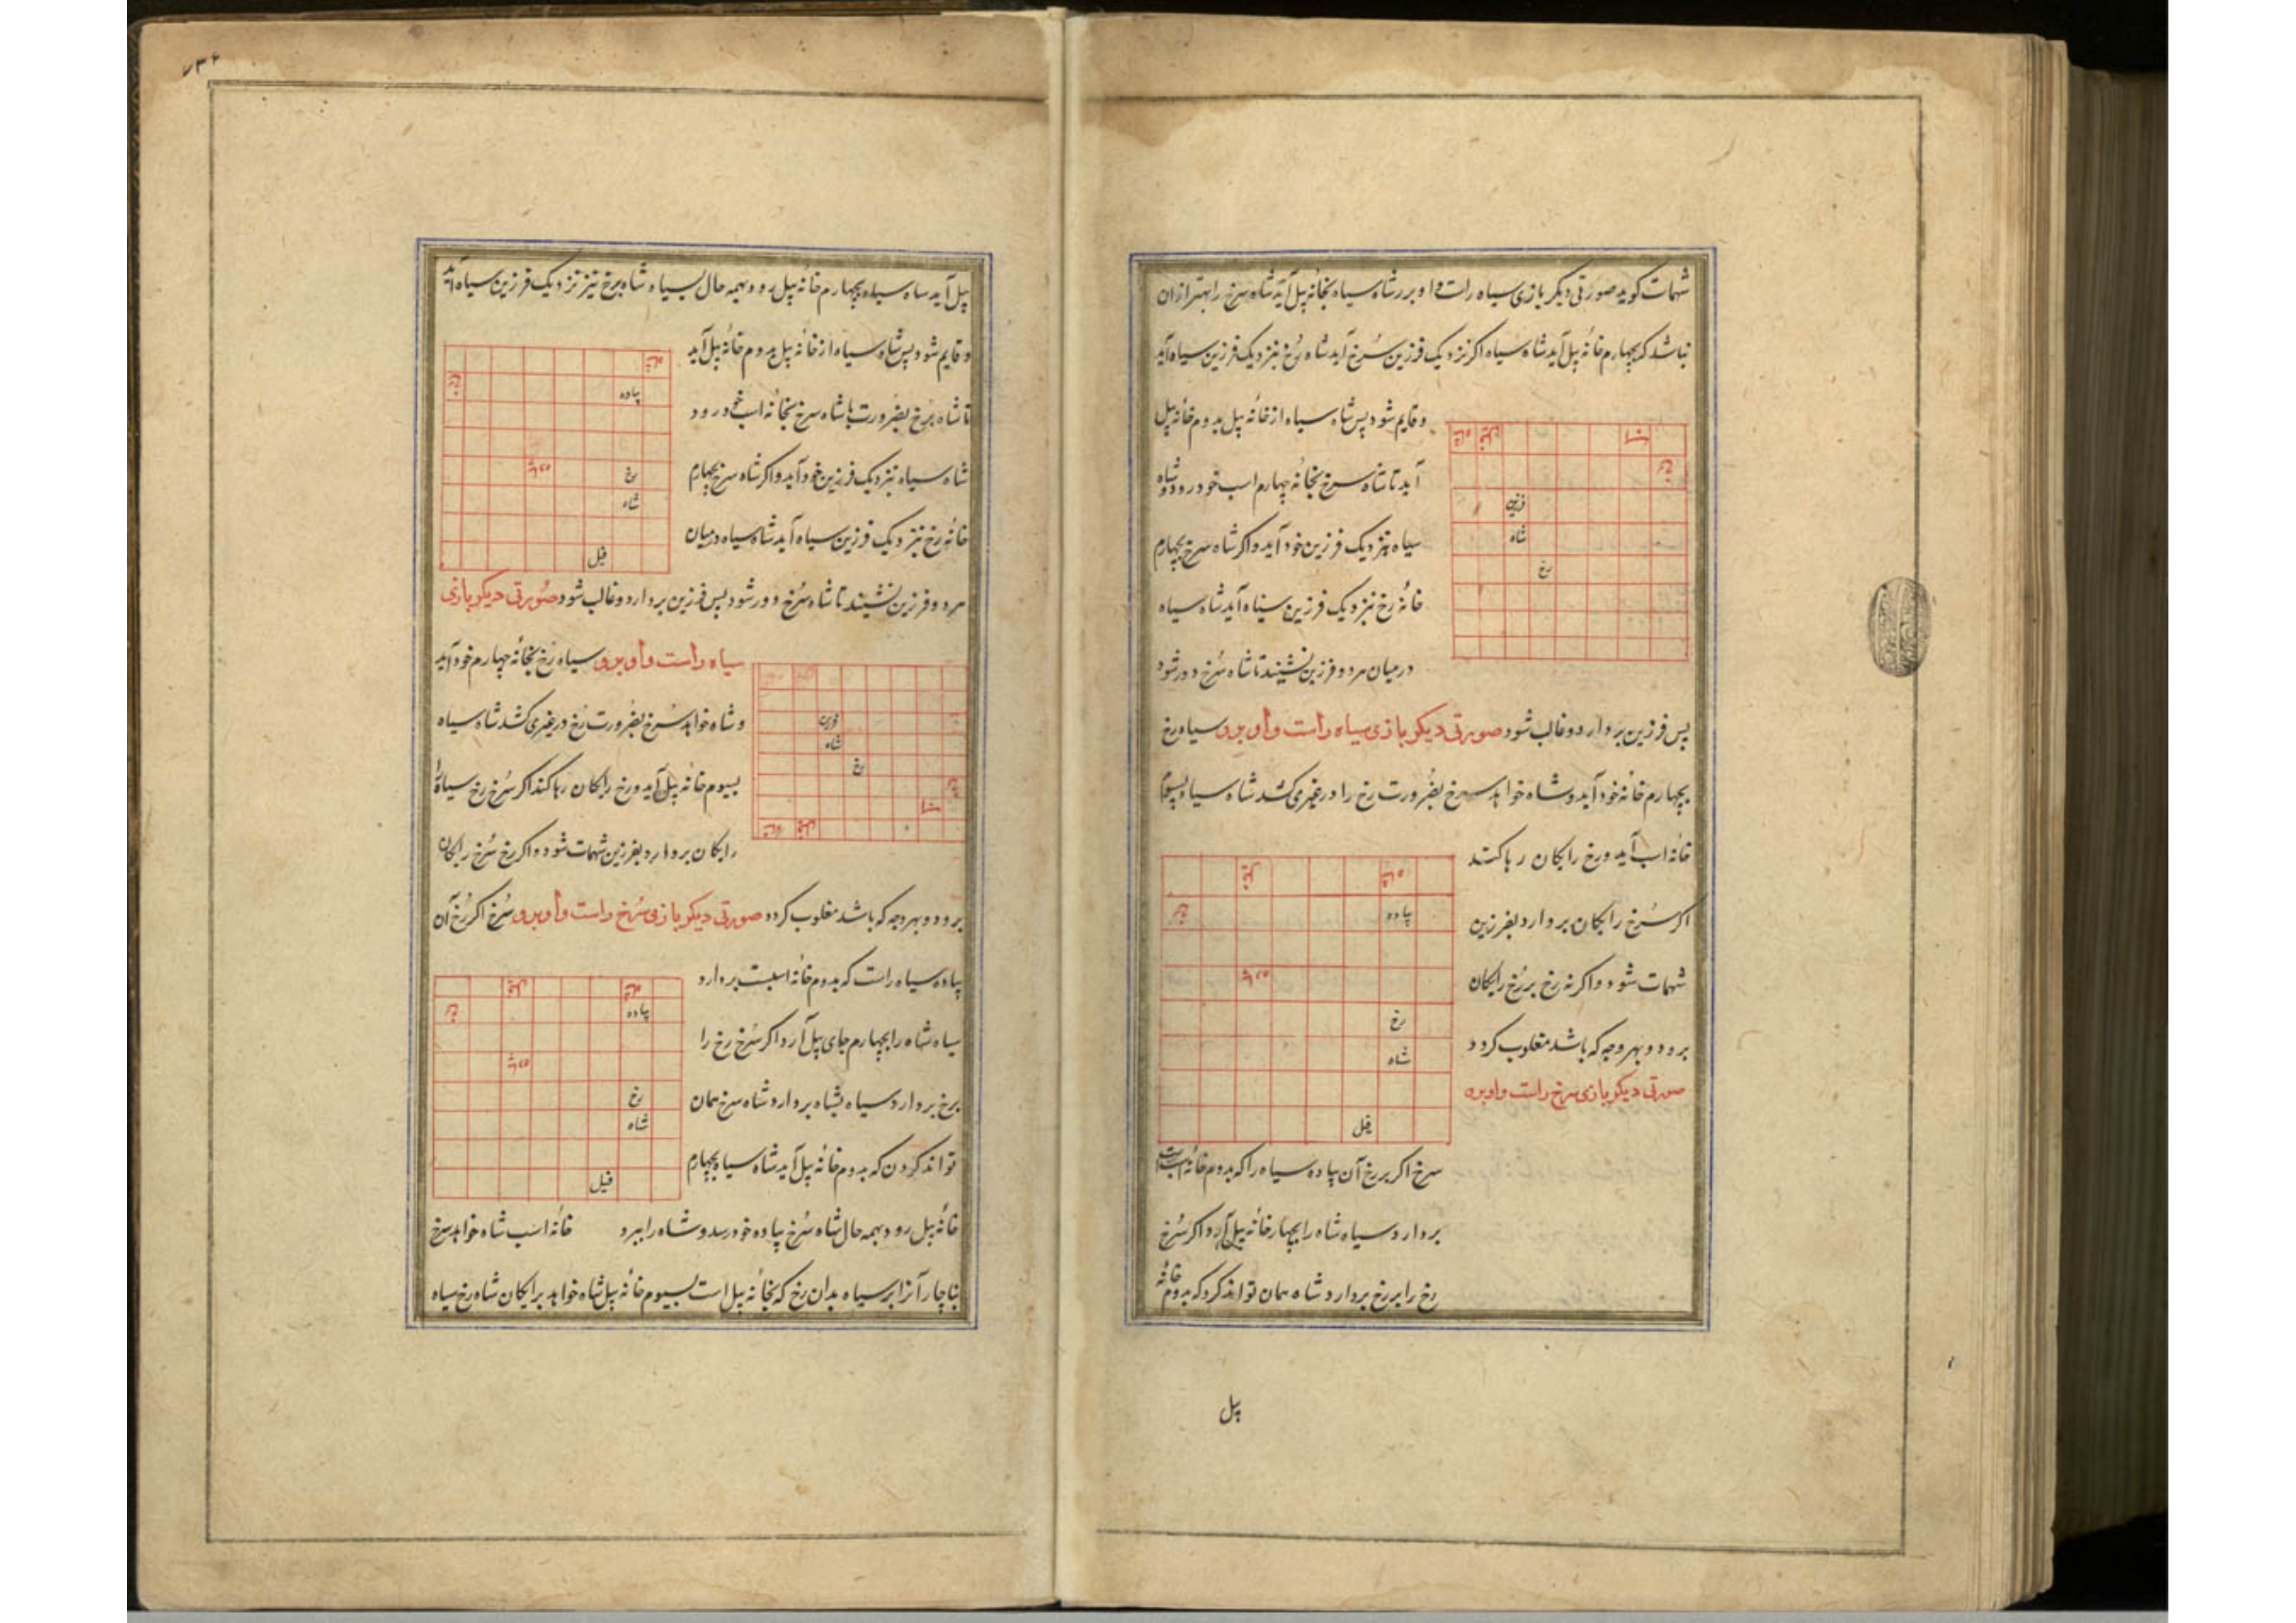 شهمات کوید صورتی دیکر بازی سیاه راست و او برد شاه سیاه بخانه پل آید شاه سرخ را بهتر ازان
نباشد که بچهارم خانه پل آید شاه سیاه اکر نزدیک فرزین سرخ آید شاه رخ نیز نزدیک فرزین سیاه آید
و قایم شود پس شاه سیاه از خانه پل بدوم خانه پل
آید تا شاه سرخ بخانه چهارم اسب خود رود و شاه
سیاه نزدیک فرزین خود آید و اکر شاه سرخ بچهارم
خانه رخ نزدیک فرزین سیاه آید شاه سیاه
در میان هر دو فرزین نشیند تا شاه سرخ دور شود
فرزین
شاه
رخ
پس فرزین بردارد و غالب شود صورتی دیکر بازی سیاه راست و او برد سیاه رخ
بچهارم خانه خود آید و شاه خواهد سرخ بضرورت رخ را در غیری کشد شاه سیاه بسیوم
خانه اسب آید و رخ رایکان رها کند
اکر سرخ رایکان بردارد بفرزین
شهمات شود و اکر نه رخ بر رخ رایکان
برود و بهر وجه که باشد مغلوب کردد
صورتی دیکر بازی سرخ راست و او برد
پیاده
رخ
شاه
فیل
سرخ اکر برخ آن پیاده سیاه را که بدوم خانه اسب است
بردارد و سیاه شاه را بچهار خانه پیل آرد اکر سرخ
رخ را برخ بردارد شاه همان تواند کرد که بدوم خانه
پل
۷۳۴
پل آید شاه سیاه بچهارم خانه پیل رود بهمه حال سیاه شاه برخ نیز نزدیک فرزین سیاه آید
و قایم شود پس شاه سیاه از خانه پل بدوم خانه پل آید
تا شاه سرخ بضرورت با شاه سرخ بخانه اسب خود رود
شاه سیاه نزدیک فرزین خود آید و اکر شاه سرخ بچهارم
خانه رخ نزدیک فرزین سیاه آید شاه سیاه در میان
پیاده
رخ
شاه
فیل
هر دو فرزین نشیند تا شاه سرخ دور شود پس فرزین بردارد و غالب شود صورتی دیکر بازی
سیاه راست و او برد سیاه رخ بخانه چهارم خود آید
و شاه خواهد سرخ بضرورت رخ در غیری کشد شاه سیاه
بسیوم خانه پل آید و رخ رایکان رها کند اکر سرخ رخ سیاه را
رایکان بردارد بفرزین شهمات شود و اکر رخ سرخ رایکان
فرزین
شاه
رخ
برود و بهر وجه که باشد مغلوب کردد صورتی دیکر بازی سرخ راست و او برد سرخ اکر رخ آن
پیاده سیاه راست که بدوم خانه اسبست بردارد
سیاه شاه را بچهارم جای پل آرد اکر سرخ رخ را
برخ بردارد سیاه بشاه بردارد شاه سرخ همان
تواند کردن که بدوم خانه پل آید شاه سیاه بچهارم
پیاده
رخ
شاه
فیل
خانه پل رود بهمه حال شاه سرخ پیاده خود رسد و شاه را ببرد خانه اسب شاه خواهد سرخ
بناچار آنرا بر سیاه بدان رخ که بخانه پل است بسیوم خانه پل شاه خواهد برایکان شاه رخ سیاه